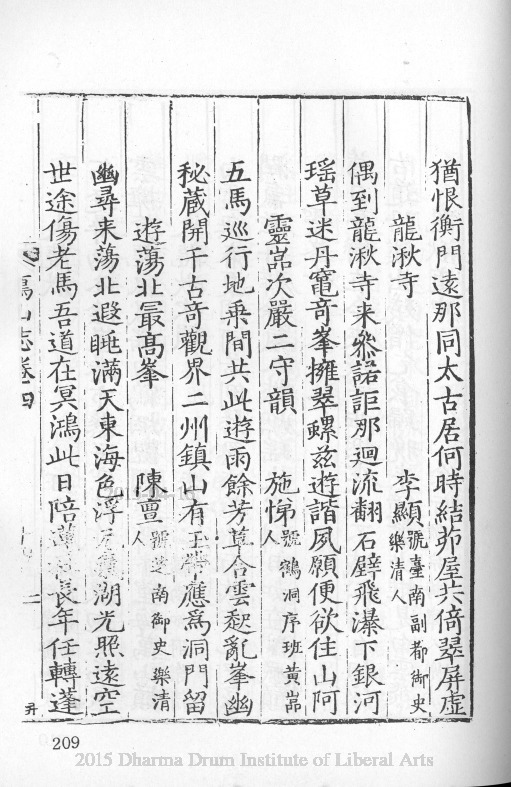 猶恨衡門遠那同太古居何時結茆屋共倚翠屏虛
龍湫寺 李顯號臺南副都御史樂清人
偶到龍湫寺来叅諾詎那迴流翻石壁飛瀑下銀河
瑶草迷丹竈竒峯擁翠螺兹遊諧夙願便欲住山阿
靈嵓次嚴二守韻 施悌號鶴洞序班黄嵓人
五馬巡行地乗間共此遊雨餘芳草合雲𣀮亂峯幽
秘藏開千古竒觀界二州鎮山有玉帶應爲洞門留
遊蕩北最髙峯 陳亶號 南御史樂清人
幽尋来蕩北遐眺滿天東海色浮 湖光照遠空
世途傷老馬吾道在冥鴻此日陪 長年任轉蓬
鴈山志卷四
二
209
2015 Dharma Drum Institute of Liberal Arts